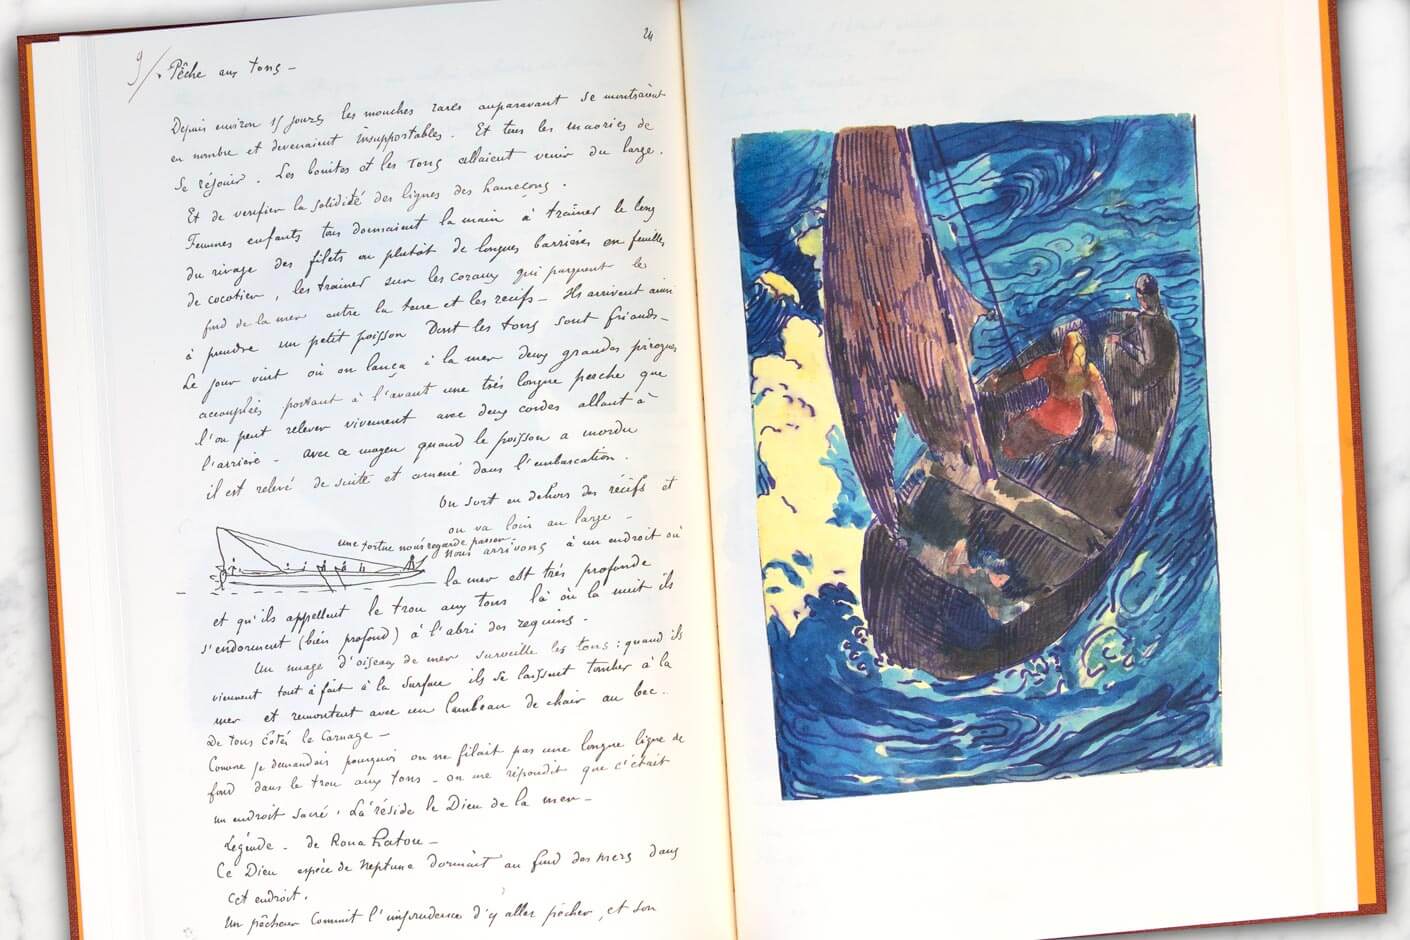 24
9/. Pêche aux tons —
Depuis environ 15 jours les mouches rares auparavant se montraient
en nombre et devenaient insupportables. Et tous les maories de
se réjouir. Les bonites et les tons allaient venir du large.
Et de verifier la solidité des lignes des hameçons.
Femmes enfants tous donnaient la main à traîner le long
du rivage des filets ou plutôt de longues barrières en feuilles
de cocotier, les trainer sur les coraux qui parquent le
fond de la mer entre la terre et les récifs — Ils arrivent ainsi
à prendre un petit poisson dont les tons sont friands —
Le jour vint où on lança à la mer deux grandes pirogues
accouplées portant à l'avant une très longue perche que
l'on peut relever vivement avec deux cordes allant à
l'arrière — avec ce moyen quand le poisson a mordu
il est relevé de suite et amené dans l'embarcation.
On sort en dehors des récifs et
on va loin au large —
une tortue nous regarde passer.
Nous arrivons à un endroit où
la mer est très profonde
et qu'ils appellent le trou aux tons là où la nuit ils
s'endorment (bien profond) à l'abri des requins.
Un nuage d'oiseaux de mer surveille les tons : quand ils
viennent tout à fait à la surface ils se laissent tomber à la
mer et remontent avec un lambeau de chair au bec.
De tous côtés le Carnage —
Comme je demandais pourquoi on ne filait pas une longue ligne de
fond dans le trou aux tons — on me répondit que c'était
un endroit sacré. Là réside le Dieu de la mer —
Légende — de Roua hatou —
Ce Dieu espèce de Neptune dormait au fond des mers dans
cet endroit.
Un pêcheur commit l'imprudence d'y aller pêcher, et son